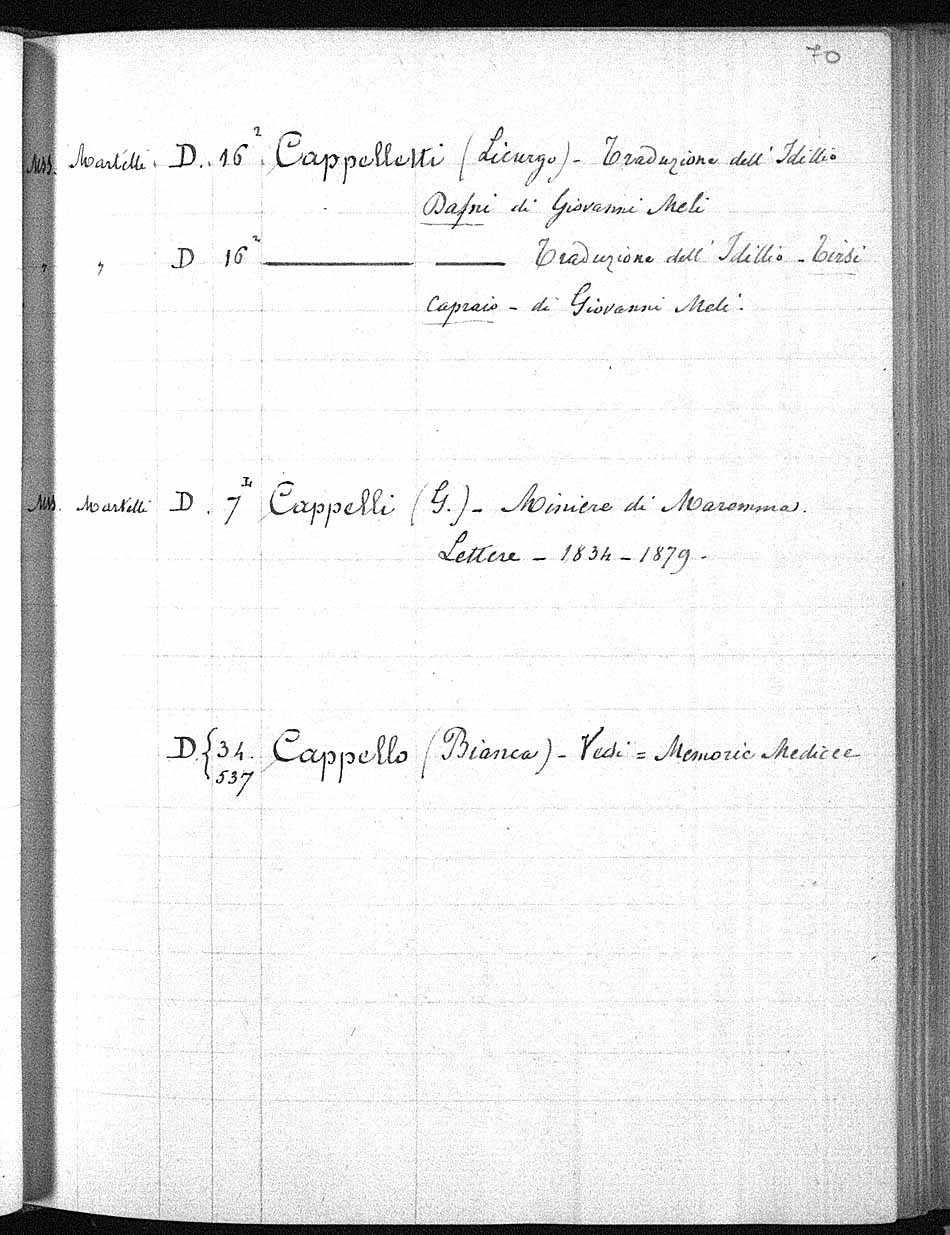 70
Mss. Martelli. D. 16² Cappelletti (Licurgo) - Traduzione dell' Idillio
Dafni di Giovanni Meli
" " D 16² ——— —— Traduzione dell' Idillio - Tirsi
Capraio - di Giovanni Meli.
Mss. Martelli D. 7 Cappelli (G.) - Miniere di Maremma.
Lettere - 1834 - 1879 -
D. { 34. Cappello (Bianca) - Vedi = Memorie Medicee
537